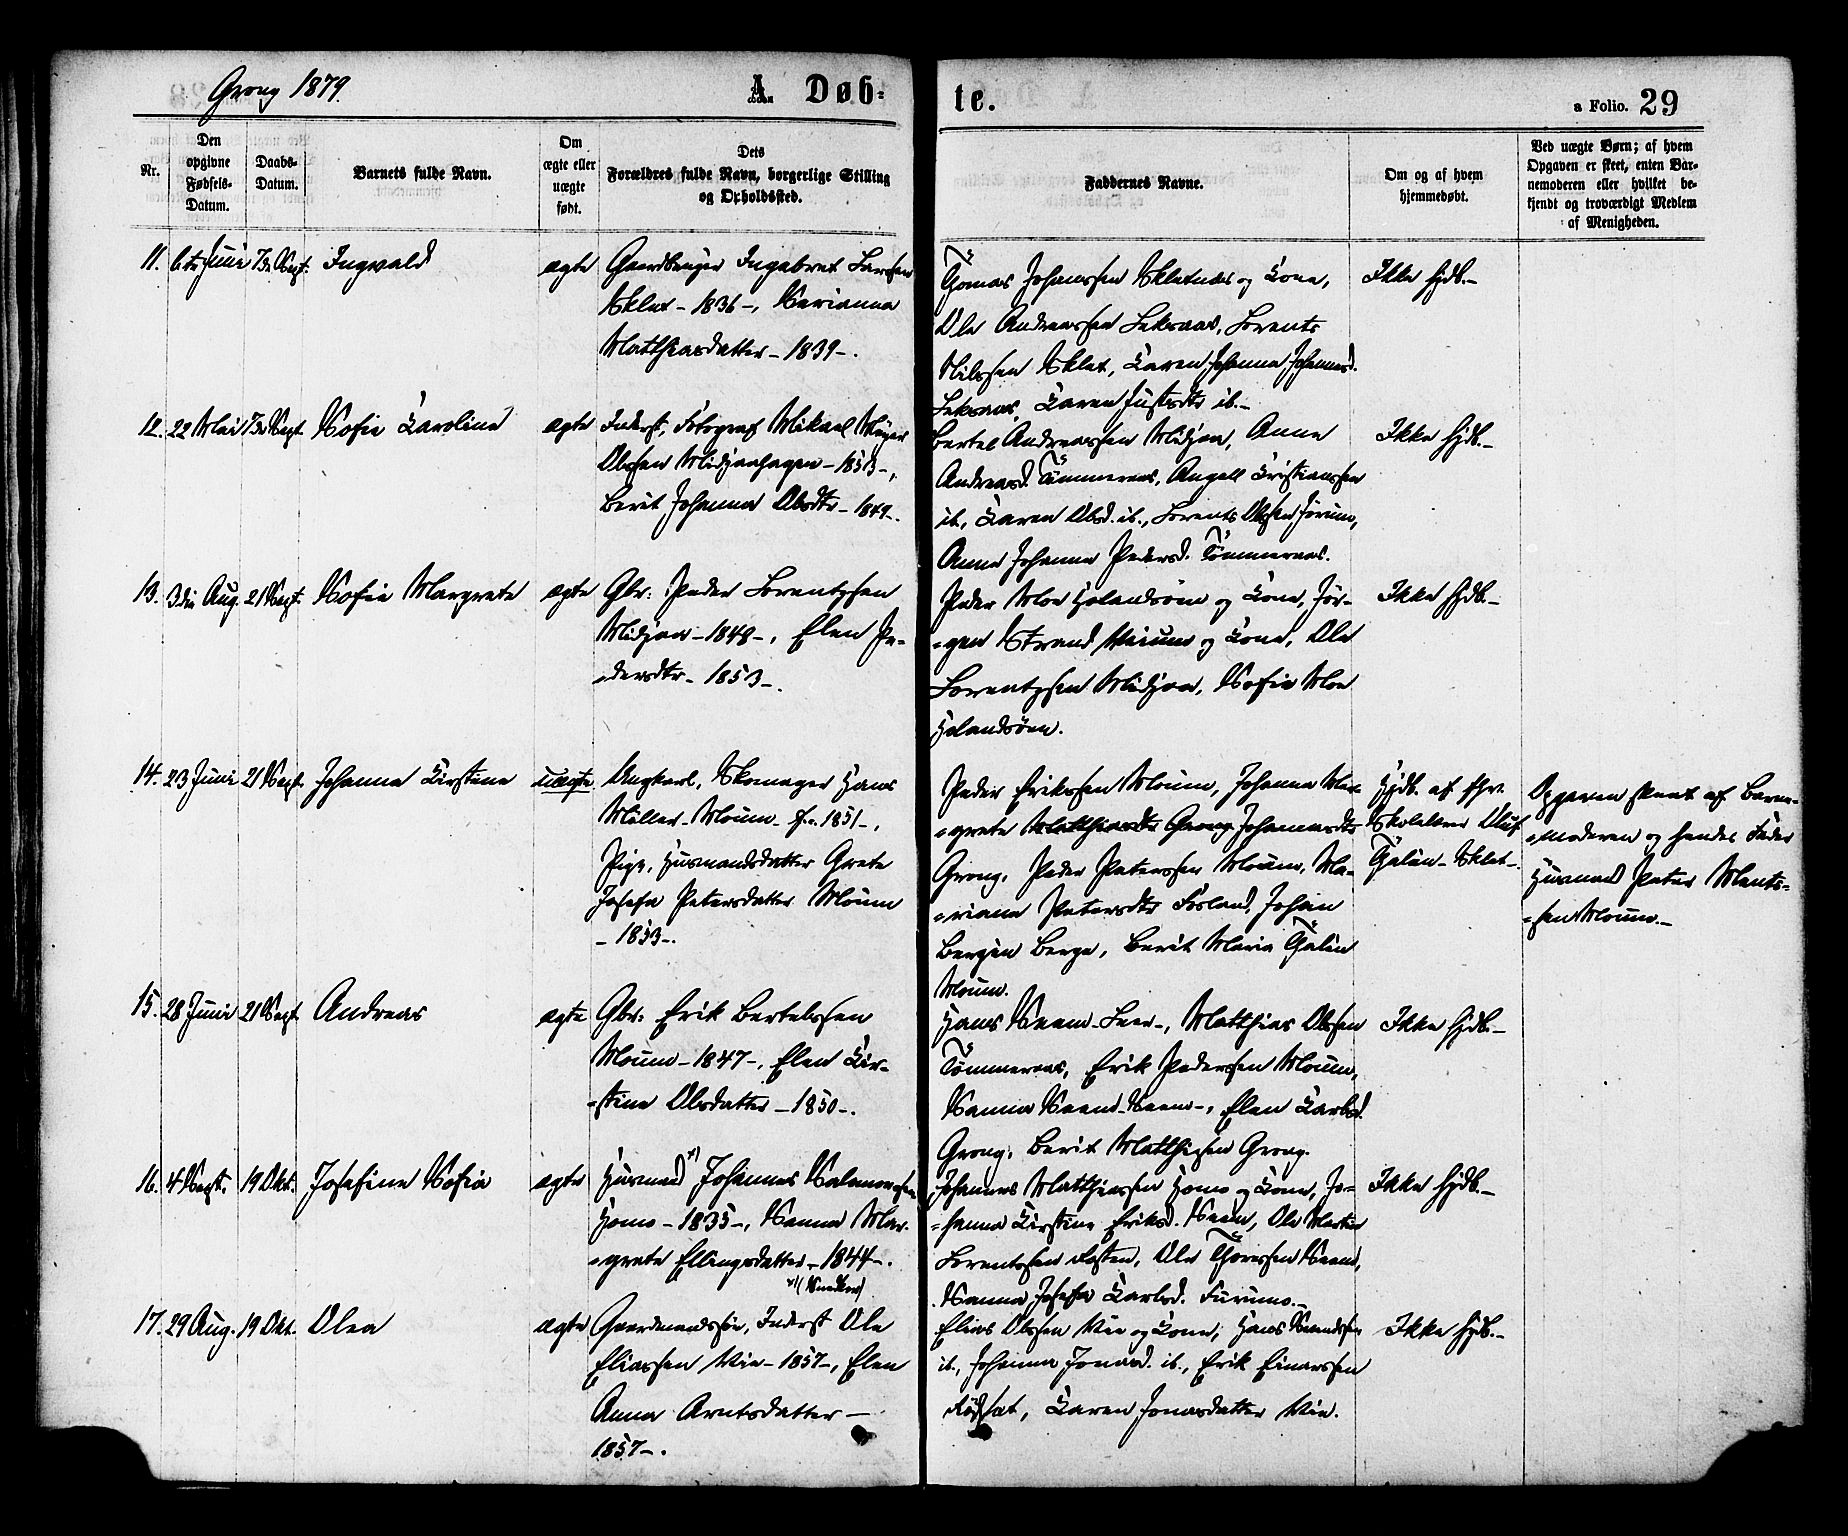 Grong 1879.
A. Døb-
te.
a Folio. 29
Nr.
Den
opgivne
Fødsels-
Datum.
Daabs-
Datum.
Barnets fulde Navn.
Om
ægte eller
uægte
født.
Dets
Forældres fulde Navn, borgerlige Stilling
og Opholdssted.
Faddernes Navne.
Om og af hvem
hjemmedøbt.
Ved uægte Børn; af hvem
Opgaven er skeet, enten Bar-
nemoderen eller hvilket be-
kjendt og troværdigt Medlem
af Menigheden.
11. 6te Juni 7de Sept. Ingvald ægte
Gaardbruger Ingebret Larssen
Sklet - 1836 -, Serianna
Matthiasdatter - 1839 -.
Thomas Johanssen Skletnes og Kone,
Ole Andreassen Leksaas, Lorents
Nilssen Sklet, Karen Johanna Johannesd.
Leksaas, Karen Justsdtr ib.-
Ikke Hjdb.-
12. 22 Mai 7de Sept. Sofie Karoline ægte
Inderst, Fotograf Mikael Meyer
Olssen Midjaahagen - 1853 -,
Berit Johanna Olsdtr - 1849 -.
Bertel Andreassen Midjoa, Anne
Andreasd. Tømmeraas, Angell Kristianssen
ib., Karen Olsd. ib., Lorents Olssen Jørum,
Anne Johanna Pedersd. Tømmeraas.
Ikke Hjdb.-
13. 3die Aug. 21 Sept. Sofie Margrete ægte
Gbr: Peder Lorentzsen
Midjoa - 1848 -, Elen Pe-
-dersdtr - 1853 -.
Peder Moe Holandsøen og Kone, Jør-
-gen Strand Veium og Kone, Ole
Lorentzsen Midjoa, Sofie Moe
Holandsøen.
Ikke Hjdb.-
14. 23 Juni 21 Sept. Johanna Kirstine uægte
Ungkarl, Skomager Hans
Møller - Moum - f. 1851 -,
Pige, Husmandsdatter Grete
Josefa Petersdatter Moum
- 1853 -.
Peder Erikssen Moum, Johanna Mar-
-grete Matthiasdtr Grong Johannesdtr
Grong, Peder Peterssen Moum, Ma-
-riana Petersdtr Fosland, Johan
Bergin Berge, Berit Maria Galin
Moum.
Hjdb. af fhr.
Skolelærer Oluf
Galin - Sklet -.
Opgaven skeet af Barne-
-moderen og hendes Fader
Husmand Peter Ments-
-sen Moum.-
15. 28 Juni 21 Sept. Andreas ægte
Gbr: Erik Bertelssen
Moum - 1847 -, Elen Kir-
-stine Olsdatter - 1850 -.
Hans Seem - Leer -, Matthias Olssen
Tømmeraas, Erik Pederssen Moum,
Sanna Seem - Seem -, Elen Karlsd.
Grong, Berit Matthissen Grong.
Ikke Hjdb.-
16. 4 Sept. 19 Okt. Josefine Sofie ægte
Husmand x) Johannes Salamonssen
Homo - 1835 -, Sanna Mar-
-grete Ellingsdatter - 1844 -.
x) (Snedker)
Johannes Matthiassen Homo og Kone, Jo-
-hanna Kirstine Eriksd. Seem, Ole Martin
Lorentssen Rosten, Ole Thoressen Seem,
Sanna Josefa Karlsd. Furumo.-
Ikke Hjdb.-
17. 29 Aug. 19 Okt. Olea ægte
Gaardmandssøn, Inderst Ole
Eliassen Vie - 1857 -, Elen
Anna Arntsdatter -
1857 -.
Elias Olssen Vie og Kone, Hans
ib., Johanna Jonasd. ib., Erik Einarssen
Karen Jonasdatter Vie.
Ikke Hjdb.-